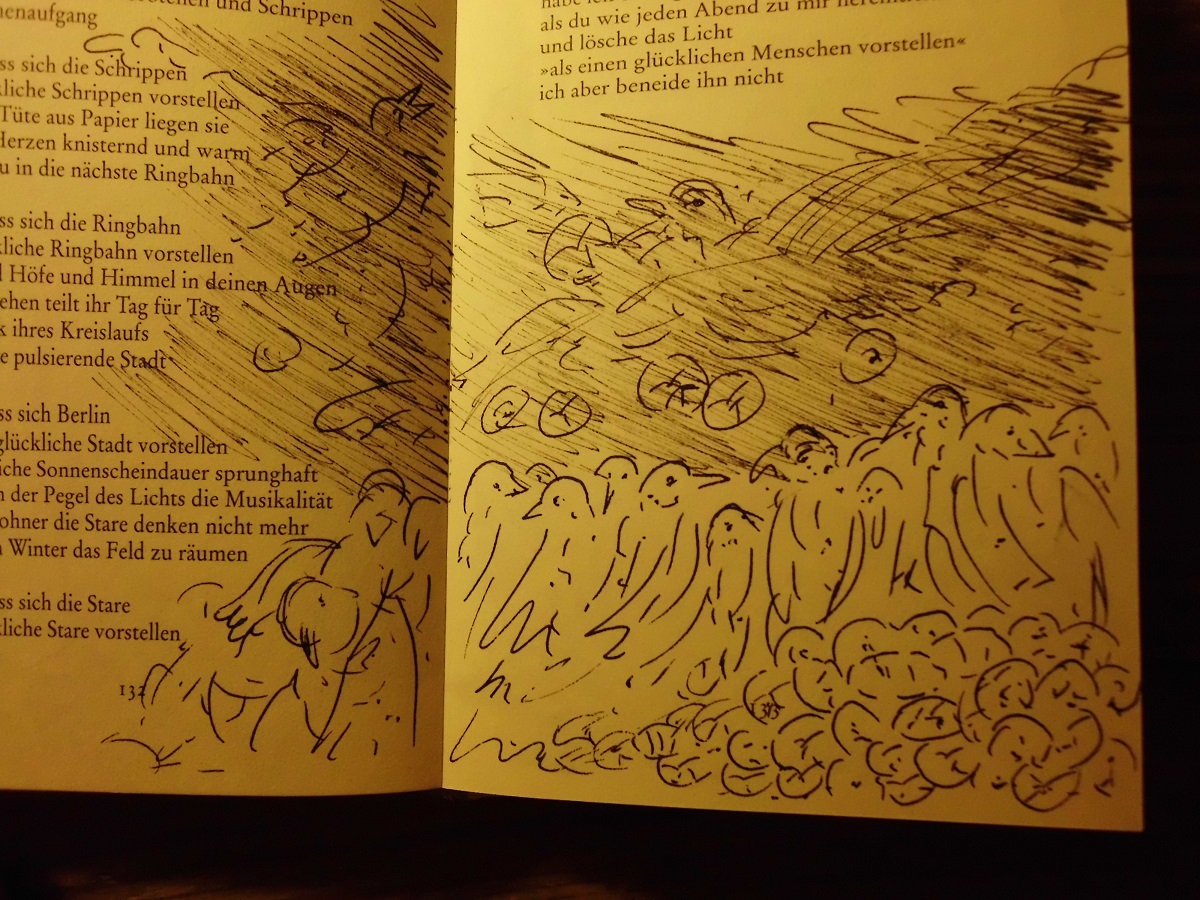 und Schrippen
nenaufgang
ss sich die Schrippen
kliche Schrippen vorstellen
Tüte aus Papier liegen sie
Herzen knisternd und warm
u in die nächste Ringbahn
ss sich die Ringbahn
kliche Ringbahn vorstellen
d Höfe und Himmel in deinen Augen
ehen teilt ihr Tag für Tag
k ihres Kreislaufs
e pulsierende Stadt
ss sich Berlin
glückliche Stadt vorstellen
iche Sonnenscheindauer sprunghaft
n der Pegel des Lichts die Musikalität
ohner die Stare denken nicht mehr
n Winter das Feld zu räumen
ss sich die Stare
kliche Stare vorstellen
132
habe ich
als du wie jeden Abend zu mir
und lösche das Licht
»als einen glücklichen Menschen vorstellen«
ich aber beneide ihn nicht
133